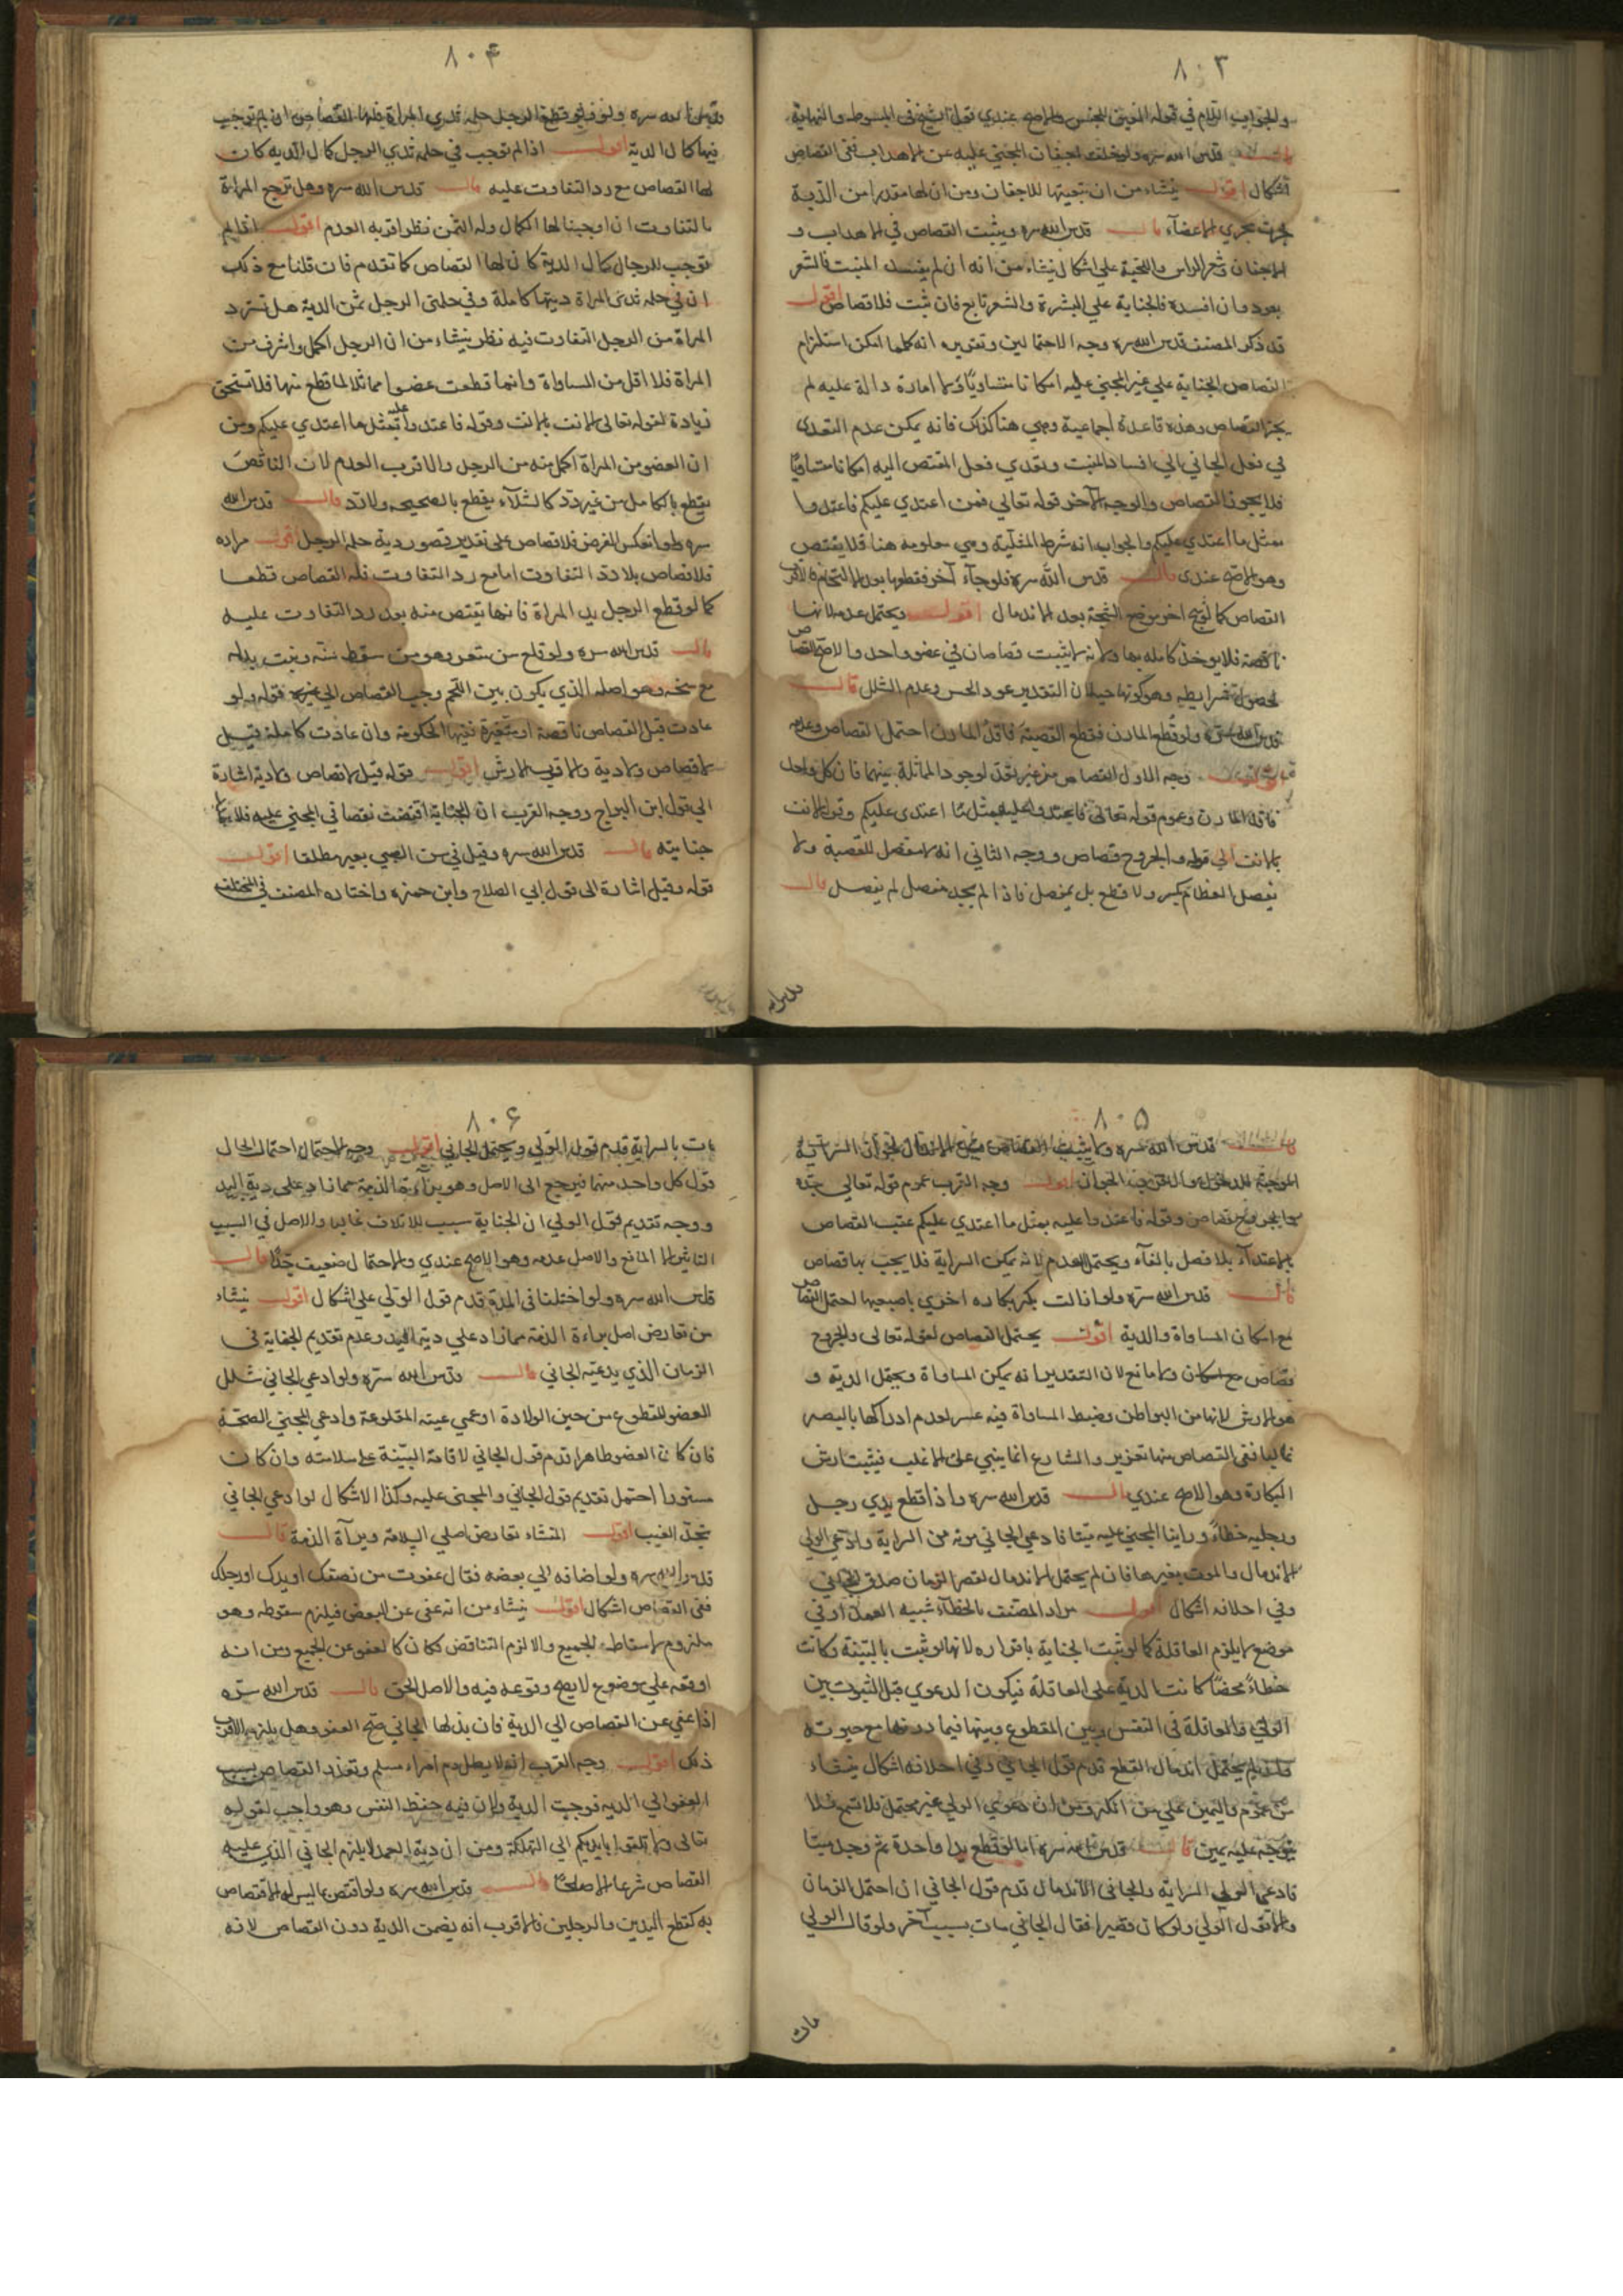 ٨٠٣
والجواب اللام في قوله العينين للجنس والاصح عندي قول الشيخ في المبسوط والنهاية
قال قدس الله سره ولو خلت اجفان المجني عليه عن الاهداب ففي القصاص
اشكال اقول ينشاء من ان تبعيتها للاجفان ومن ان لها مقدرا من الدية
جرت مجرى الاعضآء قال قدس الله سره ويثبت القصاص في الاهداب و
الاجفان وشعر الراس واللحية على اشكال ينشاء من انه ان لم يفسد المنبت فالشعر
يعود وان افسده فالجناية علي البشرة والشعر تابع فان ثبت فلا قصاص اقول
قد ذكر المصنف قدس الله سره وجه الاحتمالين وتقريره انه كلما امكن استلزام
القصاص الجناية علي غير المجني عليه امكانا متساويا ولا امارة دالة عليه لم
يجز القصاص وهذه قاعدة اجماعية وهي هنا كذلك فانه يمكن عدم التعدي
في فعل الجاني الي افساد المنبت وتعدي فعل المقتص اليه امكانا متساويا
فلا يجوز القصاص والوجه الآخر قوله تعالي فمن اعتدي عليكم فاعتدوا
بمثل ما اعتدي عليكم والجواب انه شرط المثلية وهي معلومة هنا فلا يقتص
وهو الاصح عندي قال قدس الله سره فلو جآء آخر فقطعها بعد الالتحام فالاقرب
القصاص كما لو شج اخر موضع الشجة بعد الاندمال اقول ويحتمل عدمه لانها
ناقصة فلا يوخذ كاملة بها ولانه لا يثبت قصاصان في عضو واحد والاصح القصاص
لحصول شرايطه وهو كونها حية لان التقدير عود الحس وعدم الشلل قال
قدس الله سره ولو قطع المارن فقطع القصبة فاقد المارن احتمل القصاص وعدمه
اقول وجه الاول القصاص من غير تعد لوجود المماثلة بينهما فان كل واحد
فاقد المارن وعموم قوله تعالى فاعتدوا عليه بمثل ما اعتدى عليكم وقوله والانف
بالانف الي قوله والجروح قصاص ووجه الثاني انه لا مفصل للقصبة ولا
يفصل العظام بكسر ولا قطع بل بمفصل فاذا لم يجد مفصل لم يفصل قال
قدس الله
٨٠۴
قدس الله سره ولو قطع الرجل حلمة ثدي المراة فلها القصاص ان لم توجب
فيها كمال الدية اقول اذا لم توجب في حلمة ثدي الرجل كمال الدية كان
لها القصاص مع رد التفاوت عليه قال قدس الله سره وهل ترجع المراة
بالتفاوت ان اوجبنا لها الكمال وله الثمن نظر اقربه العدم اقول اذا لم
نوجب للرجال كمال الدية كان لها القصاص كما تقدم فان قلنا مع ذلك
ان في حلمة ثدي المراة ديتها كاملة وفي حلمتي الرجل ثمن الدية هل تسترد
المراة من الرجل التفاوت فيه نظر ينشاء من ان الرجل اكمل واشرف من
المراة فلا اقل من المساواة وانها قطعت عضوا مماثلا لما قطع منها فلا تستحق
زيادة لقوله تعالى الانف بالانف وقوله فاعتدوا عليه بمثل ما اعتدي عليكم ومن
ان العضو من المراة اكمل منه من الرجل والاقرب العدم لان الناقص
يقطع بالكامل من غير رد كالشلآء يقطع بالصحيحه ولا رد قال قدس الله
سره ولو انعكس الفرض فلا قصاص على تقدير قصور دية حلمة الرجل اقول مراده
فلا قصاص بلا رد التفاوت اما مع رد التفاوت فله القصاص قطعا
كما لو قطع الرجل يد المراة فانها تقتص منه بعد رد التفاوت عليه
قال قدس الله سره ولو قلع سن مثغر وهو من سقط سنه ونبت بدله
مع سنخه وهو اصله الذي يكون بين اللحم وجب القصاص الى غيره قوله ولو
عادت قبل القصاص ناقصة او متغيرة ففيها الحكومة وان عادت كاملة قيل
لا قصاص ولا دية والاقرب الارش اقول قوله قيل لا قصاص ولا دية اشارة
الي قول ابن البراج ووجه القرب ان الجناية اقتضت نقصا في المجني عليه فلا
جنايته قال قدس الله سره وقيل في سن الصبي بعير مطلقا اقول
قوله وقيل اشارة الى قول ابي الصلاح وابن حمزه واختاره المصنف في المختلف
٨٠۵
قال قدس الله سره
الموجبة للدخول وجه القرب عموم قوله تعالي
والجروح قصاص وقوله فاعتدوا عليه بمثل ما اعتدي عليكم عقب القصاص
بالاعتدآء بلا فصل بالفآء ويحتمل العدم لانه يمكن السراية فلا يجب بها قصاص
قال قدس الله سره ولو ازالت بكر بكاره اخري باصبعها احتمل القصاص
مع امكان المساواة والدية اقول يحتمل القصاص لقوله تعالى والجروح
قصاص مع امكان ولا مانع لان التقدير انه يمكن المساواة ويحتمل الدية و
هو الارش لانها من البواطن وضبط المساواة فيه عسر لعدم ادراكها بالبصر
غالبا ففي القصاص منها تغرير والشارع انما يبني على الاغلب فيثبت ارش
البكارة وهو الاصح عندي قال قدس الله سره واذا قطع يدي رجل
ورجليه خطاء وراينا المجني عليه ميتا فادعي الجاني موته من السراية وادعي الولي
الاندمال والموت بغيرها فان لم يحتمل الاندمال لقصر الزمان صدق الجاني
وفي احلافه اشكال اقول مراد المصنف بالخطآء شبيه العمد او في
موضع لا يلزم العاقلة كما لو ثبت الجناية باقراره لانها لو ثبت بالبينة وكانت
خطاء محضا كانت الدية على العاقلة فيكون الدعوي قبل الثبوت بين
الولي والعاقلة في النفس وبين المقطوع وبينها فيما دونها مع حيوته
فلو لم يحتمل اندمال القطع قدم قول الجاني وفي احلافه اشكال ينشاء
من عموم واليمين علي من انكر ومن ان دعوي الولي غير محتمل فلا تسمع فلا
يتوجه عليه يمين قال قدس الله سره اما لو قطع يدا واحدة ثم وجد ميتا
فادعي الولي السراية والجاني الاندمال قدم قول الجاني ان احتمل الزمان
والا قول الولي ولو كان قصيرا فقال الجاني مات بسبب آخر ولو قال الولي
مات
٨٠۶
مات بالسراية قدم قول الولي ويحتمل الجاني اقول وجه الاحتمال احتمال الحال
قول كل واحد منهما فيرجع الى الاصل وهو برآءة الذمة مما زاد على دية اليد
ووجه تقديم قول الولي ان الجناية سبب للاتلاف غالبا والاصل في السبب
التاثير الا المانع والاصل عدمه وهو الاصح عندي والاحتمال ضعيف جدا قال
قدس الله سره ولو اختلفا في المدة قدم قول الولي على اشكال اقول ينشاء
من تعارض اصل براءة الذمة مما زاد علي دية اليد وعدم تقديم الجناية في
الزمان الذي يدعيه الجاني قال قدس الله سره ولو ادعي الجاني شلل
العضو المقطوع من حين الولادة او عمي عينه المقلوعة وادعي المجني الصحة
فان كان العضو ظاهرا قدم قول الجاني لاقامة البينة على سلامته وان كان
مستورا احتمل تقديم قول الجاني والمجني عليه وكذا الاشكال لو ادعي الجاني
تجدد العيب اقول المنشاء تعارض اصلي السلامة وبرآة الذمة قال
قدس الله سره ولو اضافه الي بعضه فقال عفوت من نصفك او يدك او رجلك
ففي القصاص اشكال اقول ينشاء من انه عفي عن البعض فيلزم سقوطه وهو
ملزوم لاسقاطه الجميع والا لزم التناقض فكان كالعفو عن الجميع ومن انه
اوقعه علي موضوع لا يصح وقوعه فيه والاصل الحق قال قدس الله سره
اذا عفي عن القصاص الي الدية فان بذلها الجاني صح العفو وهل يلزمه الاقرب
ذلك اقول وجه القرب انه لا يطل دم امراء مسلم وتعذر القصاص بسبب
العفو الي الديه فوجبت الدية ولان فيه حفظ النفس وهو واجب لقوله
تعالى ولا تلقوا بايديكم الى التهلكة ومن ان دية العمد لا يلزم الجاني الذي عليه
القصاص شرعا الا صلحا قال قدس الله سره ولو اقتص بما ليس له الاقتصاص
به كقطع اليدين والرجلين فالاقرب انه يضمن الدية دون القصاص لانه